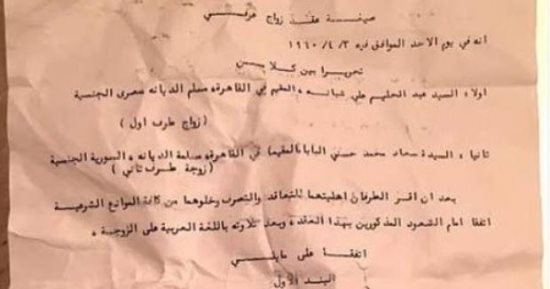 صيغة عقد زواج عرفي
انه في يوم الاحد الموافق فيه ١٩٦٠/٤/٣
تحريرا بين كلا من
اولا ء السيد عبد الحليم علي شبانه ء المقيم في القاهرة ء مسلم الديانه ء مصرى الجنسية
( زواج طرف اول )
ثانيا ء السيدة سعاد محمد حسني البابا ء المقيمة في القاهرة ء مسلمة الديانه ء السورية الجنسية
( زوجة طرف ثاني )
بعد ان اقر الطرفان اهليتهما للتعاقد والتصرف وخلوهما من كافة الموانع الشرعية
اتفقا امام الشهود المذكورين بهذا العقد ء وبعد تلاوته باللغة العربية على الزوجية ء
اتفقة على مايلي
البند الاول